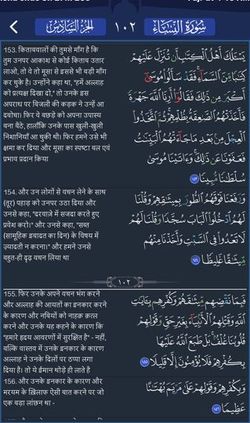 سُورَةُ النِّسَاءِ
١٠٢
الجزء السادس
153. किताबवालों की तुमसे माँग है कि
तुम उनपर आकाश से कोई किताब उतार
लाओ, तो वे तो मूसा से इससे भी बड़ी माँग
कर चुके है। उन्होंने कहा था, "हमें अल्लाह
को प्रत्यक्ष दिखा दो," तो उनके इस
अपराध पर बिजली की कड़क ने उन्हें आ
दबोचा। फिर वे बछड़े को अपना उपास्य
बना बैठे, हालाँकि उनके पास खुली-खुली
निशानियाँ आ चुकी थी। फिर हमने उसे भी
क्षमा कर दिया और मूसा का स्पष्टा बल एवं
प्रभाव प्रदान किया
يَسْـَٔلُكَ أَهْلُ ٱلْكِتَٰبِ أَن تُنَزِّلَ عَلَيْهِمْ
كِتَٰبًا مِّنَ ٱلسَّمَآءِ فَقَدْ سَأَلُوا۟ مُوسَىٰٓ
أَكْبَرَ مِن ذَٰلِكَ فَقَالُوٓا۟ أَرِنَا ٱللَّهَ جَهْرَةً
فَأَخَذَتْهُمُ ٱلصَّٰعِقَةُ بِظُلْمِهِمْ ثُمَّ ٱتَّخَذُوا۟
ٱلْعِجْلَ مِنۢ بَعْدِ مَا جَآءَتْهُمُ ٱلْبَيِّنَٰتُ
فَعَفَوْنَا عَن ذَٰلِكَ وَءَاتَيْنَا مُوسَىٰ
سُلْطَٰنًا مُّبِينًا ١٥٣
154. और उन लोगों से वचन लेने के साथ
(तूर) पहाड़ को उनपर उठा दिया और
उनसे कहा, "दरवाज़े में सजदा करते हुए
प्रवेश करो।" और उनसे कहा, "सब्त
(सामूहिक इबादत का दिन) के विषय में
ज़्यादती न करना।" और हमने उनसे
बहुत-ही दृढ़ वचन लिया था
وَرَفَعْنَا فَوْقَهُمُ ٱلطُّورَ بِمِيثَٰقِهِمْ وَقُلْنَا
لَهُمُ ٱدْخُلُوا۟ ٱلْبَابَ سُجَّدًا وَقُلْنَا لَهُمْ
لَا تَعْدُوا۟ فِى ٱلسَّبْتِ وَأَخَذْنَا مِنْهُم
مِّيثَٰقًا غَلِيظًا ١٥٤
١٠٢
155. फिर उनके अपने वचन भंग करने
और अल्लाह की आयतों का इनकार करने
के कारण और नबियों को नाहक़ क़त्ल
करने और उनके यह कहने के कारण कि
"हमारे हृदय आवरणों में सुरक्षित है" - नहीं,
बल्कि वास्तव में उनके इनकार के कारण
अल्लाह ने उनके दिलों पर ठप्पा लगा
दिया है। तो ये ईमान थोड़े ही लाते है
فَبِمَا نَقْضِهِم مِّيثَٰقَهُمْ وَكُفْرِهِم بِـَٔايَٰتِ
ٱللَّهِ وَقَتْلِهِمُ ٱلْأَنۢبِيَآءَ بِغَيْرِ حَقٍّ وَقَوْلِهِمْ
قُلُوبُنَا غُلْفٌۢ بَلْ طَبَعَ ٱللَّهُ عَلَيْهَا
بِكُفْرِهِمْ فَلَا يُؤْمِنُونَ إِلَّا قَلِيلًا ١٥٥
156. और उनके इनकार के कारण और
मरयम के ख़िलाफ ऐसी बात करने पर जो
एक बड़ा लांछन था -
وَبِكُفْرِهِمْ وَقَوْلِهِمْ عَلَىٰ مَرْيَمَ بُهْتَٰنًا
عَظِيمًا ١٥٦